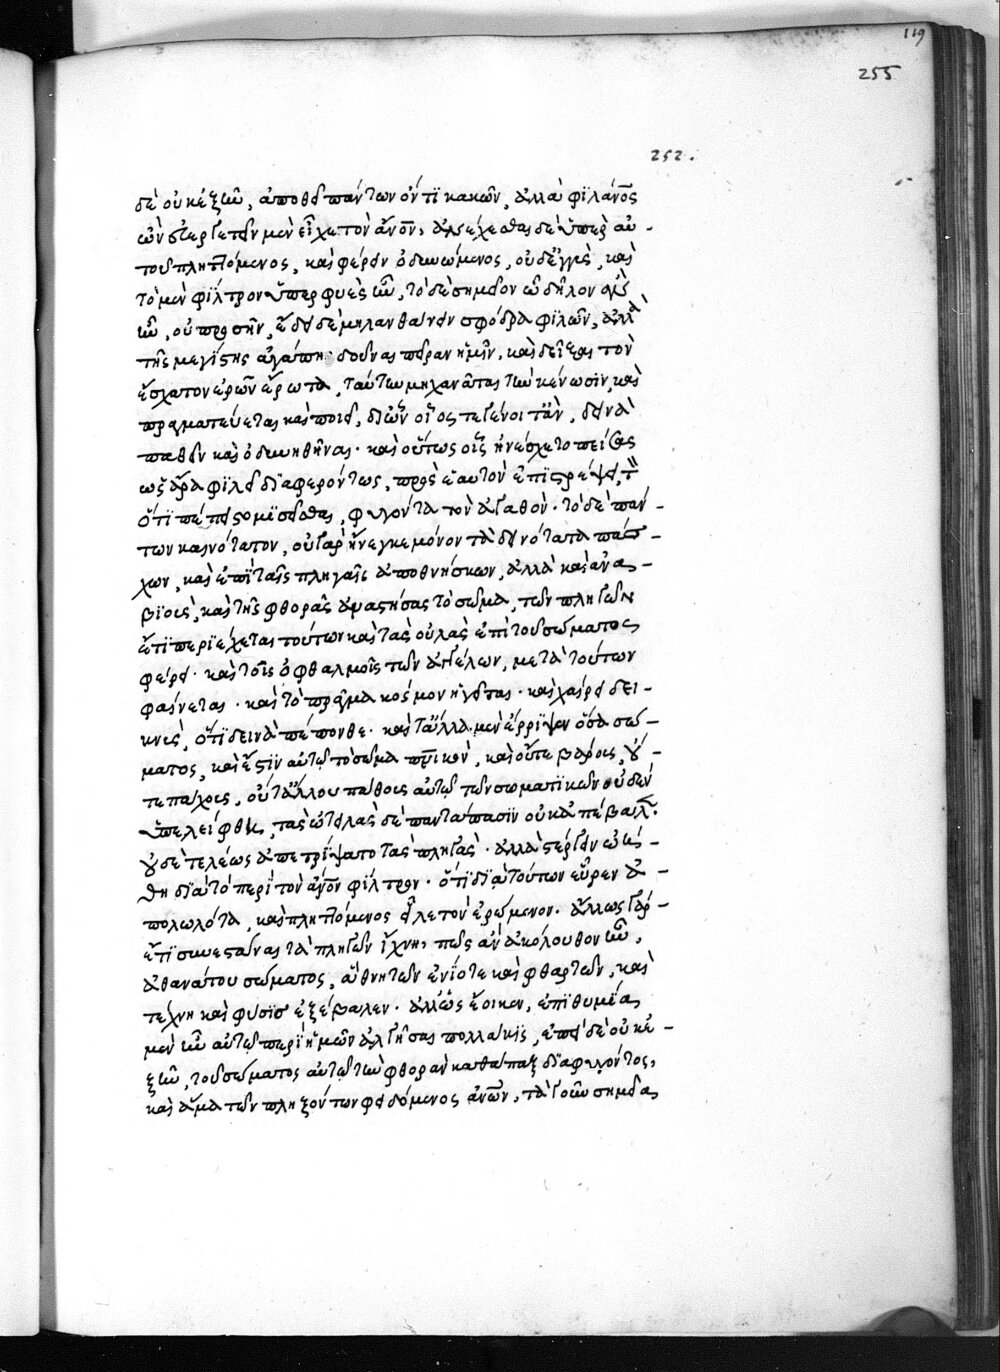 119
255
252.
δὲ οὐκ ἐξῆν, ἀπαθεῖ πάντων ὄντι κακῶν, ἀλλὰ φιλάνος
ὢν στέργειν μὲν εἶχε τὸν ἄνον, ἀνέχεσθαι δὲ ὑπὲρ αὐ-
τοῦ πληττόμενος, καὶ φέρειν ὀδυνώμενος, οὐδ' ἐγγὺς, καὶ
τὸ μὲν φίλτρον ὑπερφυὲς ἦν, τὸ δὲ σημεῖον ὧ δῆλον
ἦν, οὐ προσῆν, ἔδει δὲ μὴ λανθάνειν σφόδρα φιλῶν, ἀλλὰ
τῆς μεγίστης ἀγάπης δοῦναι πεῖραν ἡμῖν, καὶ δεῖξαι τὸν
ἔσχατον ἐρῶν ἔρωτα, ταύτην μηχανᾶται τὴν κένωσιν, καὶ
πραγματεύεται καὶ ποιεῖ, δι' ὧν οἷος τε γένοιτ' ἂν, δεινὰ
παθεῖν καὶ ὀδυνηθῆναι· καὶ οὕτως οἷς ἠνέσχετο πείσας
ὡς ἄρα φιλεῖ διαφερόντως, πρὸς ἑαυτὸν ἐπιστρέψει, τὸν
ὅτι πέπειστο μισεῖσθαι, φυγόντα τὸν ἀγαθόν· τὸ δὲ πάν-
των καινότατον, οὐ γὰρ ἤνεγκε μόνον τὰ δεινότατα πάσ-
χων, καὶ ἐπὶ ταῖς πληγαῖς ἀποθνήσκων, ἀλλὰ καὶ ἀνα-
βιοὺς, καὶ τῆς φθορᾶς ἀναστήσας τὸ σῶμα, τῶν πληγῶν
ἔτι περιέχεται τούτων καὶ τὰς οὐλὰς ἐπὶ τοῦ σώματος
φέρει· καὶ τοῖς ὀφθαλμοῖς τῶν ἀγγέλων, μετὰ τούτων
φαίνεται· καὶ τὸ πρᾶγμα κόσμον ἡγεῖται· καὶ χαίρει δει-
κνὺς, ὅτι δεινὰ πέπονθε· καὶ τἄλλα μὲν ἔρριψεν ὅσα σώ-
ματος, καὶ ἔστιν αὐτῷ τὸ σῶμα πνικὸν, καὶ οὔτε βάρους, οὔ-
τε πάχους, οὔτ' ἄλλου πάθους αὐτῷ τῶν σωματικῶν οὐδὲν
ὑπελείφθη, τὰς ὠτειλὰς δὲ παντάπασιν οὐκ ἀπέβαλεν.
οὐδὲ τελέως ἀπετρίψατο τὰς πληγὰς· ἀλλὰ στέργειν ᾠή-
θη διὰ τὸ περὶ τὸν ἄνον φίλτρον· ὅτι διὰ τούτων εὗρεν ἀ-
πολωλότα, καὶ πληττόμενος εἷλε τὸν ἐρώμενον. ἄλλως γὰρ-
ἔτι συνεστάναι τὰ πληγῶν ἴχνη, πῶς ἀν ἀκόλουθον ἦν,
ἀθανάτου σώματος, ἃ θνητῶν ἐνίοτε καὶ φθαρτῶν, καὶ
τέχνη καὶ φύσις ἐξέβαλεν· ἀλλ' ὡς ἔοικεν, ἐπιθυμία
μὲν ἦν αὐτῷ περὶ ἡμῶν ἀλγῆσαι πολλάκις, ἐπεὶ δὲ οὐκ ἐ-
ξῆν, τοῦ σώματος αὐτῷ τὴν φθορὰν καθάπαξ διαφυγόντος,
καὶ ἅμα τῶν πληξόντων φειδόμενος ἀνων, τὰ γοῦν σημεῖα